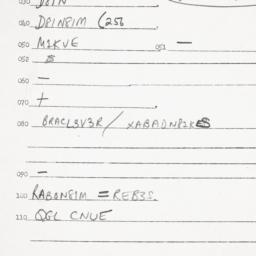 030 DOIN
040 DPINPIM (256
050 M1KVE 051 —
052 B
060 —
070 +
080 BRACL3V3R / XABADNP1KES
090 —
100 RABONPIM = REB3S.
110 QGL CNUE